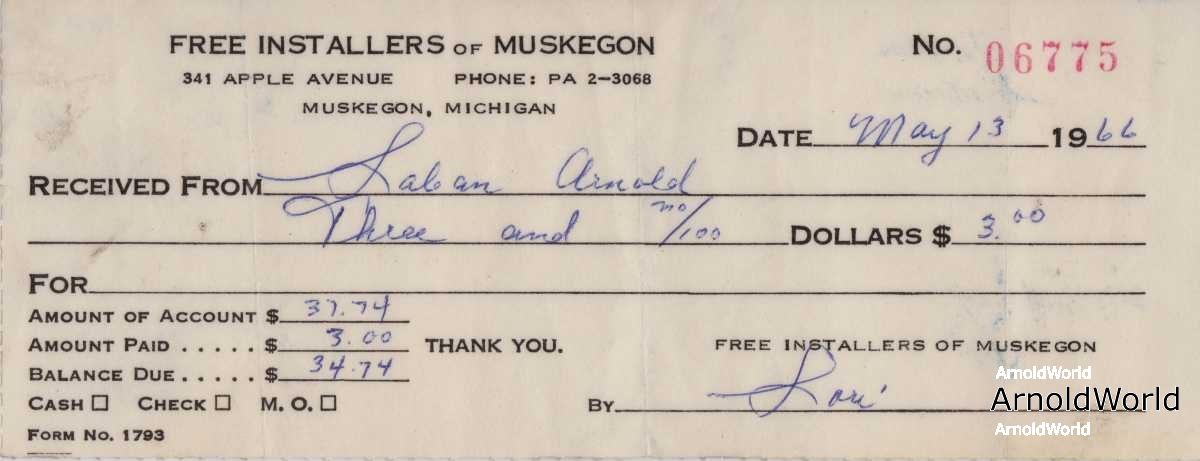 FREE INSTALLERS OF MUSKEGON No. 06775
341 APPLE AVENUE PHONE: PA 2-3068
MUSKEGON, MICHIGAN
DATE May 13 1966
RECEIVED FROM Laban Arnold
Three and no/100 DOLLARS $ 3.00
FOR
AMOUNT OF ACCOUNT $ 37.74
AMOUNT PAID ..... $ 3.00 THANK YOU. FREE INSTALLERS OF MUSKEGON
BALANCE DUE ..... $ 34.74
CASH ☐ CHECK ☐ M. O. ☐ BY Lori
FORM NO. 1793
ArnoldWorld
ArnoldWorld
ArnoldWorld